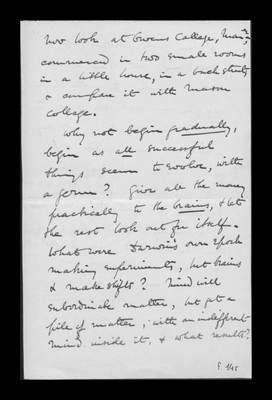 Now look at Owens College, Manr;
commenced in two small rooms
in a little house, in a back street,
& compare it with Mason
College.
Why not begin gradually,
begin as all successful
things seem to evolve, with
a germ? Give all the money
practically to the brains, & let
the rest look out for itself.
What were Darwin's own epoch
making experiments, but brains
& makeshifts? Mind will
subordinate matter, but get a
pile of matter, with an indifferent
mind inside it, & what results?